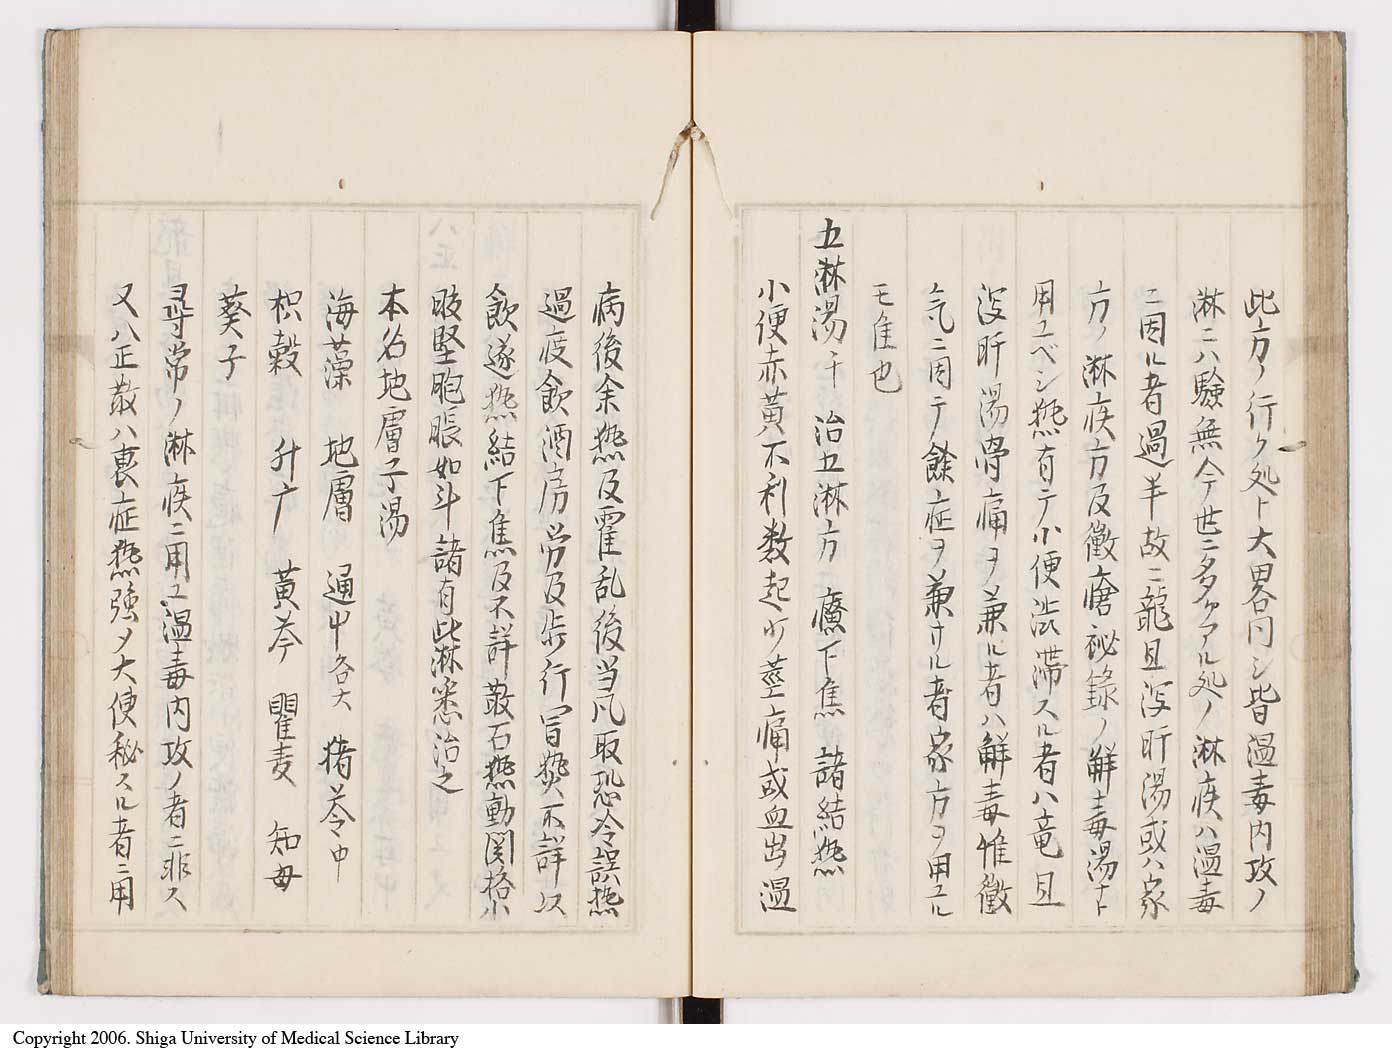 此方ノ行ク処ト大畧同シ皆温毒内攻ノ
淋ニハ験無今世ニ多クアル処ノ淋疾ハ温毒
ニ因ル者過半故ニ龍且泻肝湯或ハ家
方ノ淋疾方及黴瘡秘録ノ解毒湯ナト
用ユベシ熱有テ小便渋滞スル者ハ竜且
泻肝湯骨痛ヲ兼ル者ハ解毒惟黴
気ニ因テノ餘症ヲ兼サル者家方ヲ用ユル
モ隹也
五淋湯千 治五淋方 癊下焦 諸結熱
小便赤黄不利数起少莖痛或血出温
病後余熱及霍乱後当凡取恐冷誤熱
過度飲酒房労及歩行冒熱不詳以
飲遂熱結下焦及不詳散石熱動関格小
腹堅胞脹如斗諸有此淋悉治之
本名地膚子湯
海藻 地膚 通中各大 猪苓中
枳穀 升广 黄芩 瞿麦 知母
葵子
尋常ノ淋疾ニ用ユ温毒内攻ノ者ニ非ス
又八正散ハ裏症熱強メ大便秘スル者ニ用
Copyright 2006. Shiga University of Medical Science Library